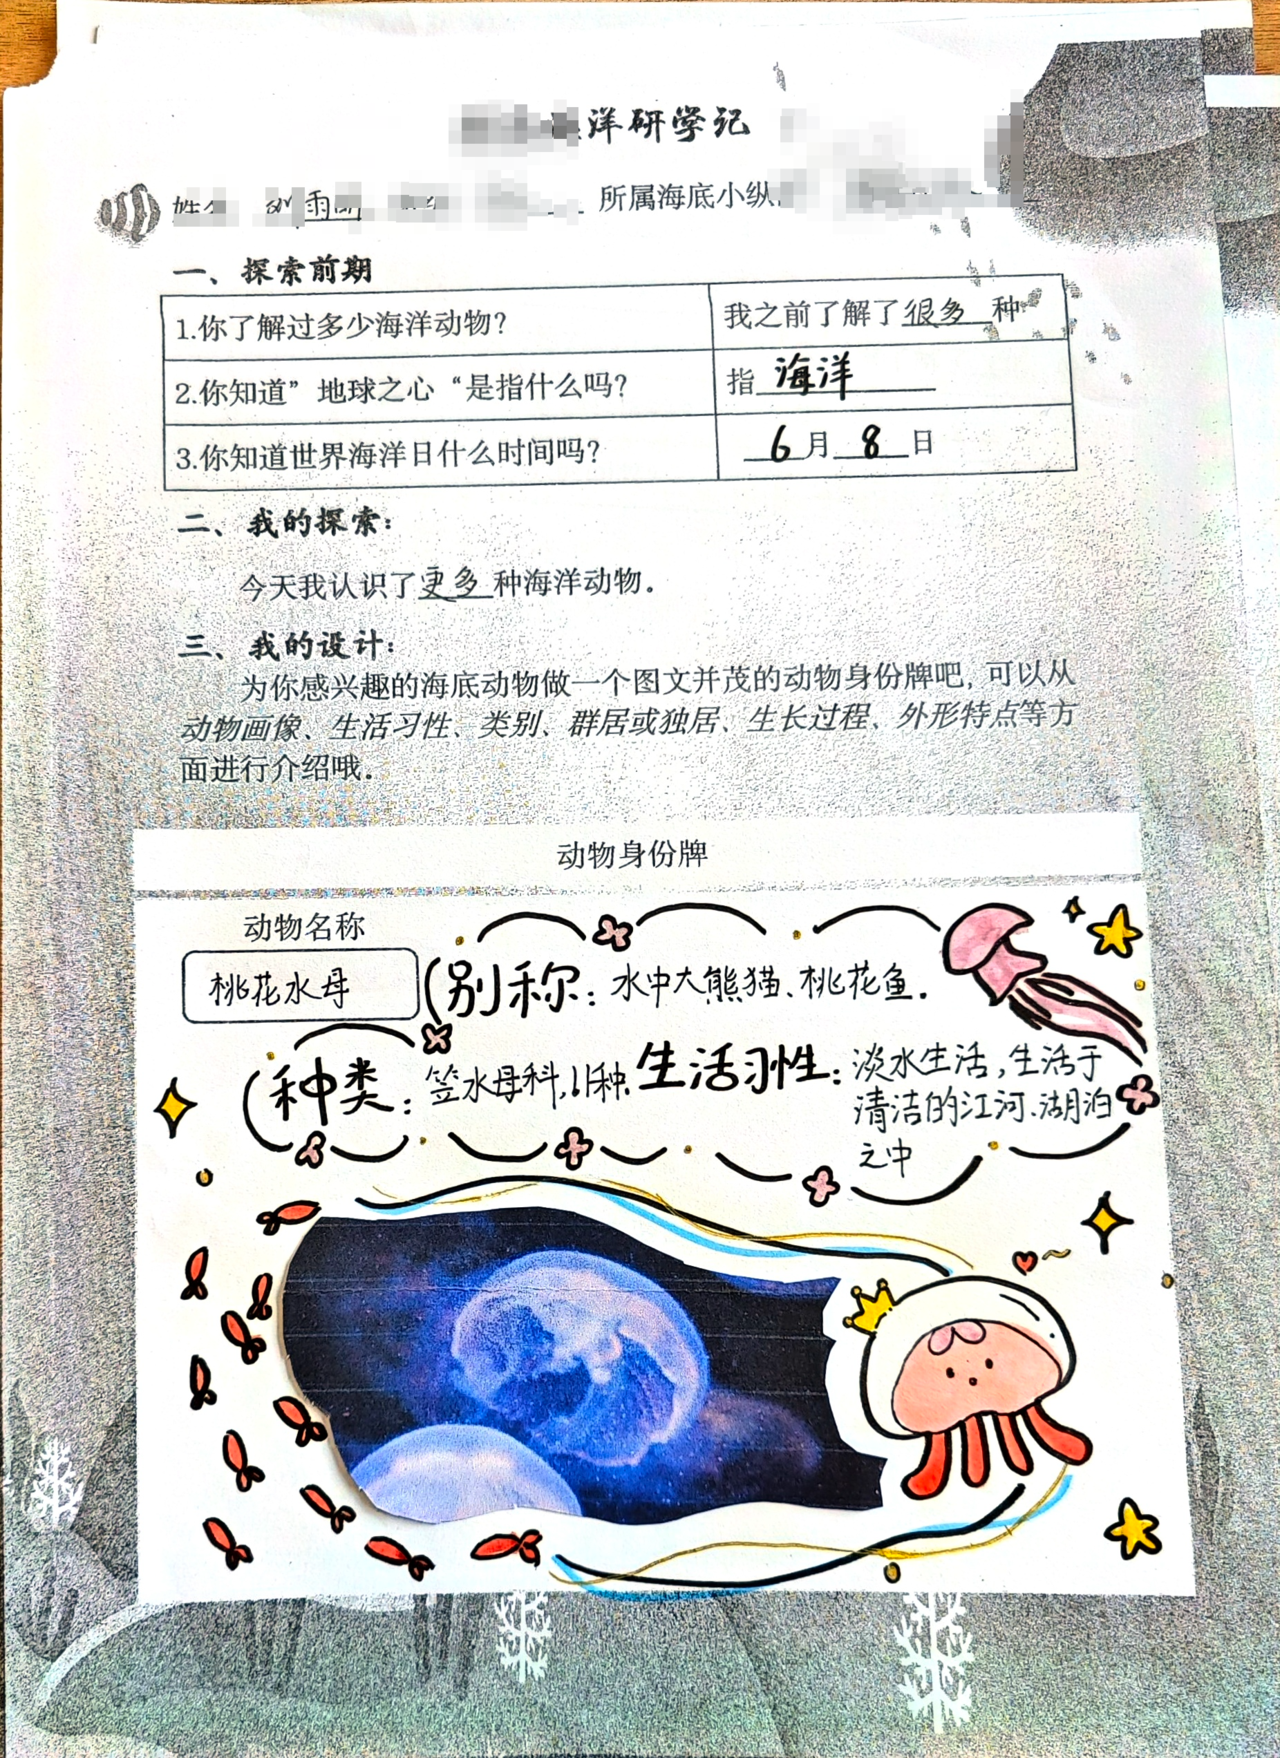 洋研学记
所属海底小纵
一、探索前期
1.你了解过多少海洋动物？ 我之前了解了很多种
2.你知道”地球之心“是指什么吗？ 指海洋
3.你知道世界海洋日什么时间吗？ 6月8日
二、我的探索：
今天我认识了更多种海洋动物。
三、我的设计：
为你感兴趣的海底动物做一个图文并茂的动物身份牌吧，可以从
动物画像、生活习性、类别、群居或独居、生长过程、外形特点等方
面进行介绍哦。
动物身份牌
动物名称
桃花水母
别称：水中大熊猫、桃花鱼.
种类：笠水母科,11种.
生活习性：淡水生活，生活于
清洁的江河、湖泊
之中